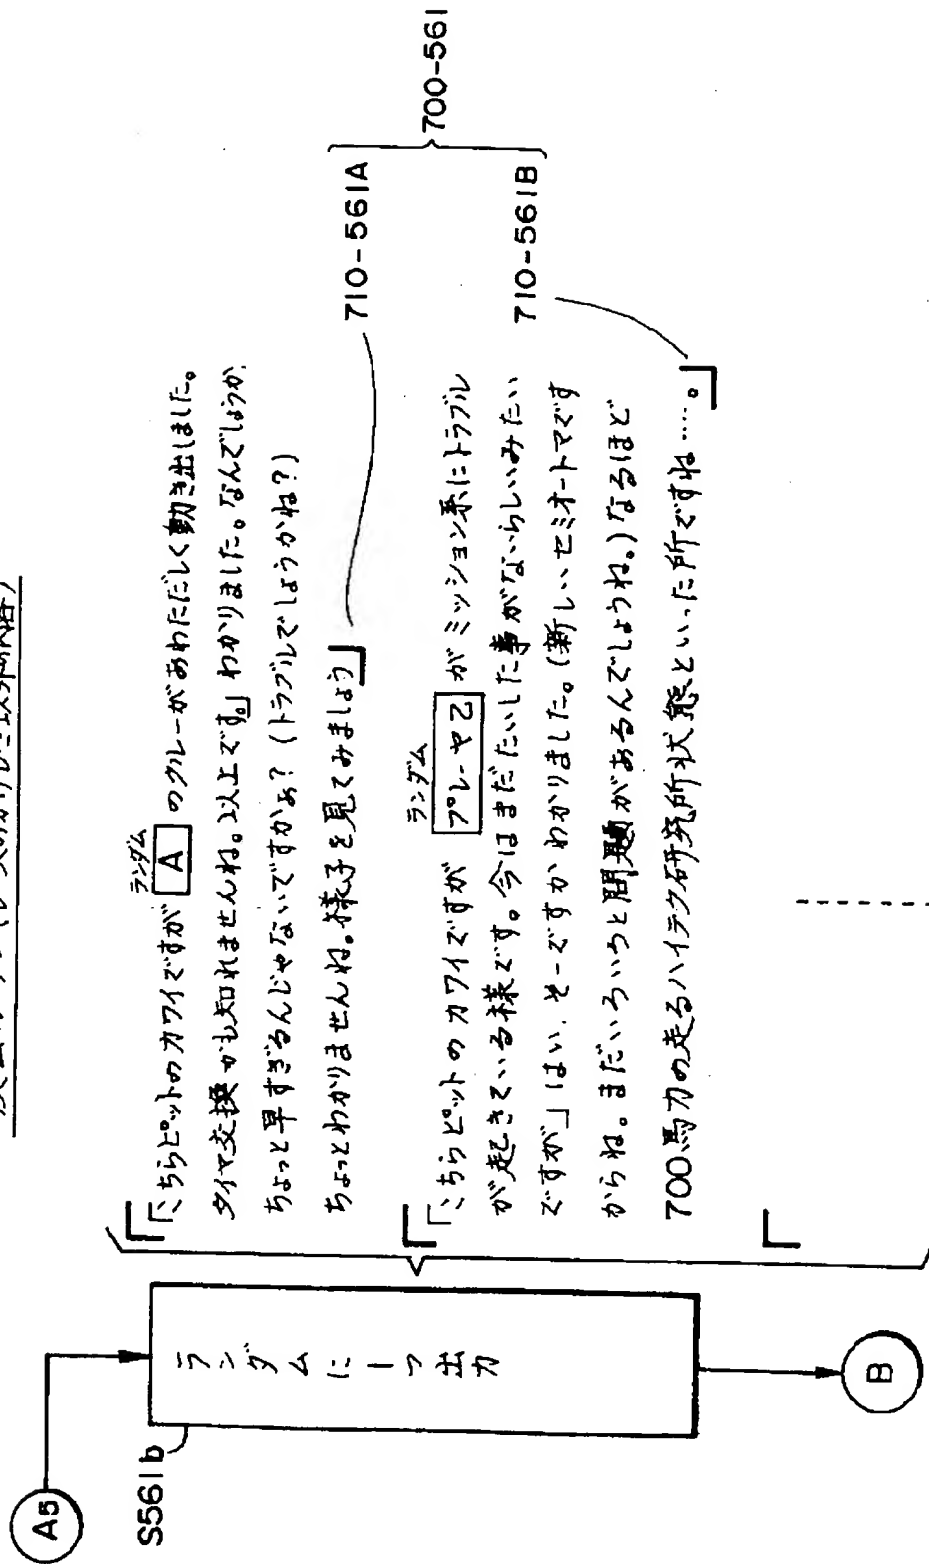 A5
S561b
ランダムに一つ出力
B
ランダム
「こちらピットのカワイですが A のクルーがあわただしく動き出しました。
タイヤ交換かも知れませんね。以上です。」わかりました。なんでしょうか、
ちょっと早すぎるんじゃないですかぁ?(トラブルでしょうかね?)
ちょっとわかりませんね。様子を見てみましょう
710-561A
700-561
ランダム
「こちらピットのカワイですが プレーヤ乙 がミッション系にトラブル
が起きている様です。今はまだたいした事がないらしいみたい
ですが」はい、そーですかわかりました。(新しいセミオートマです
からね。まだいろいろと問題があるんでしょうね。)なるほど
700馬力の走るハイテク研究所状態といった所ですね……。
710-561B